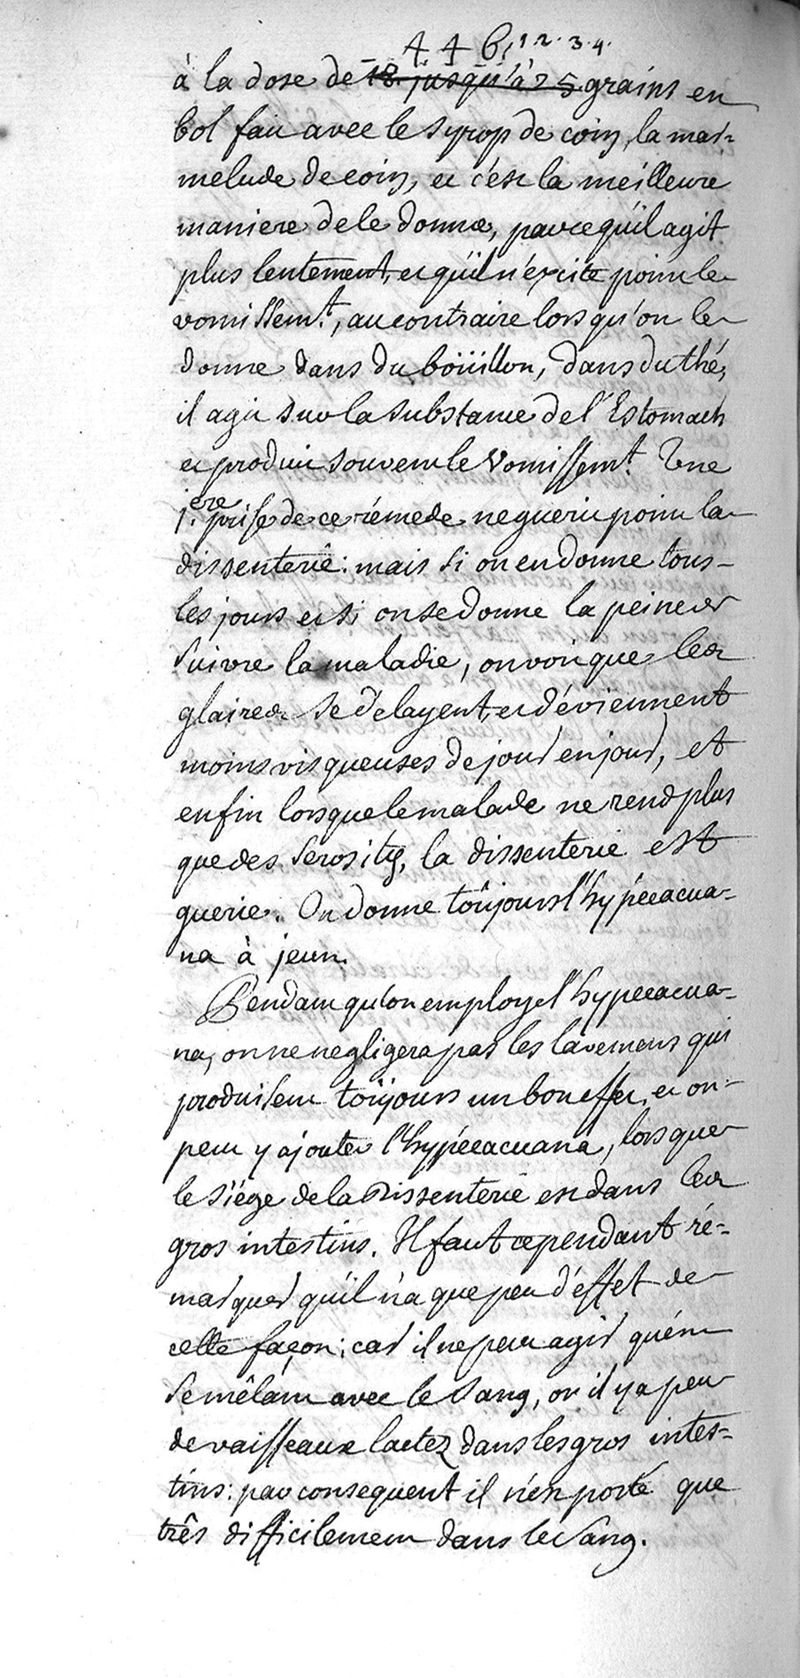 4 4 6, 1 2. 3. 4.
à la dose de 18. jusqu'à 25 grains en
bol fait avec le syrop de coin, la mar-
melade de coin, et c'est la meilleure
maniere de le donner, parce qu'il agit
plus lentement, et qu'il n'éxcite point le
vomissemt., au contraire lorsqu'on le
donne dans du boüillon, dans du thé,
il agit sur la substance de l'Estomach
et produit souvent le Vomissemt. Une
1ere. prise de ce rémede ne guerit point la
dissenterie: mais si on en donne tous
les jours et si on se donne la peine de
suivre la maladie, on voit que les
glaires se délayent, et déviennent
moins visqueuses de jour en jour, et
enfin lorsque le malade ne rend plus
que des serositéz, la dissenterie est
guerie. On donne toûjours l'hypécacua-
na à jeun.
Pendant qu'on employe l'hypecacua-
na, on ne negligera pas les lavemens qui
produisent toûjours un bon effet, et on
peut y ajouter l'hypécacuana, lorsque
le siége de la Dissenterie est dans les
gros intestins. Il faut cependant ré-
marquer qu'il n'a que peu d'effet de
cette façon; car il ne peut agir qu'én
se mêlant avec le sang, or il y a peu
de vaisseaux lactez dans les gros intes-
tins: par consequent il n'est porté que
três difficilement dans le sang.